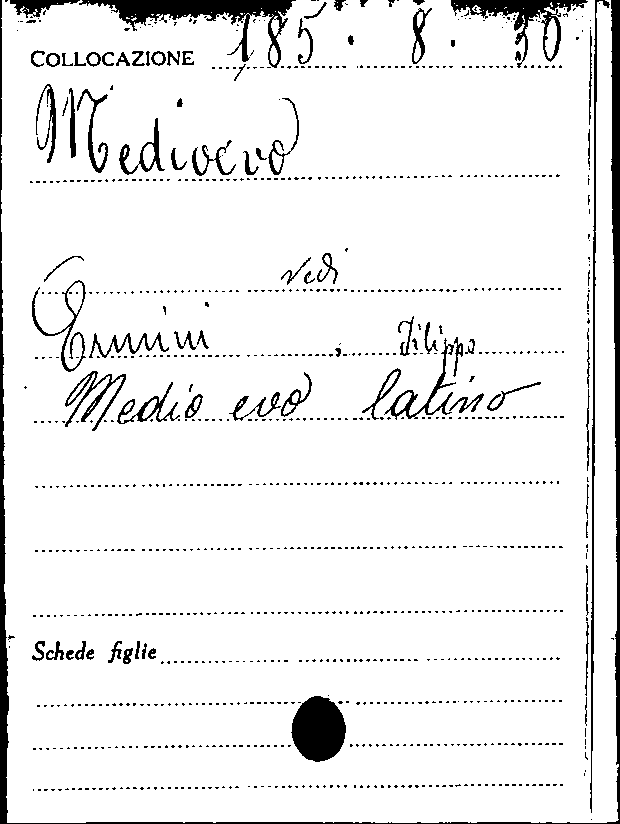 COLLOCAZIONE 185. 8. 30.
Medioevo
vedi
Ermini, Filippo
Medio evo latino
Schede figlie